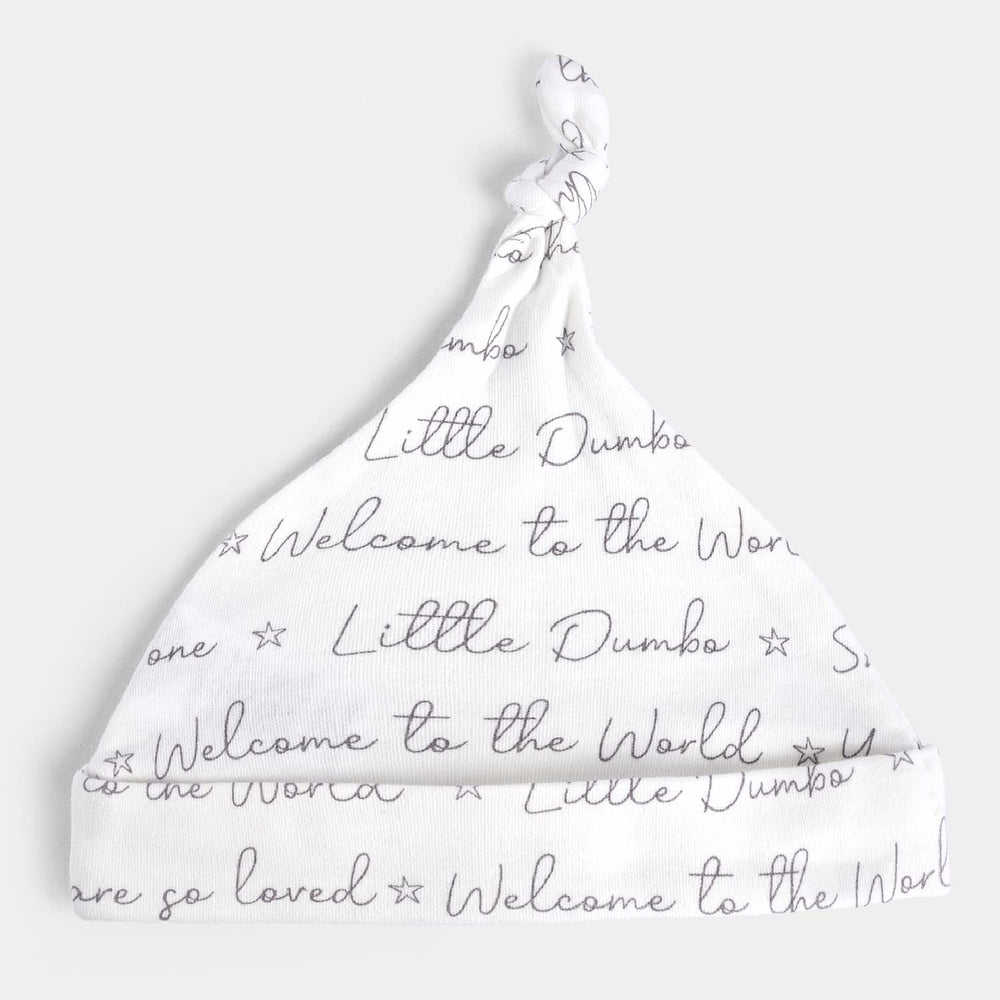 the
Little Dumbo
☆ Welcome to the
one ☆ Little Dumbo ☆
☆ Welcome to the World ☆
to the World ☆ Little Dumbo ☆
are so loved ☆ Welcome to the Worl